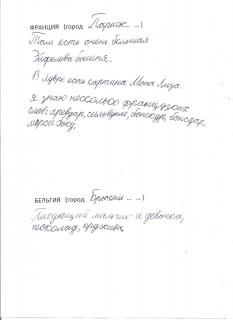 ФРАНЦИЯ (город Париж. ..)
Там есть очень большая
Эйфелева башня.
В лувре есть картина Мона Лиза.
Я знаю несколько французских
слов: аревуар, сильвупле, бонжур, бонсуар,
мерси боку.
БЕЛЬГИЯ (город Брюссель .. ..)
Писующий мальчик и девочка,
шоколад, кружива,